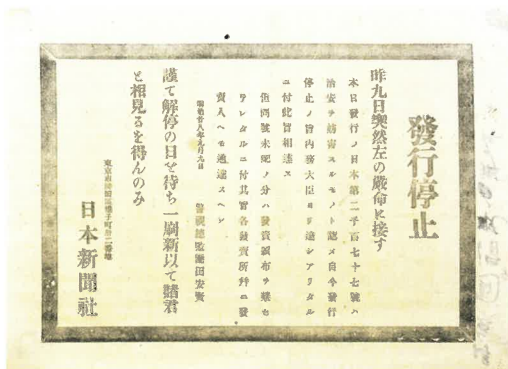 發行停止
昨九日突然左の嚴命に接す
本日發行ノ日本第二千百七十七號ハ
治安ヲ妨害スルモノト認メ自今發行
停止ノ旨內務大臣ヨリ達シアリタル
ニ付此旨相達ス
但同號未配ノ分ハ發賣頒布ヲ禁セ
ラレタルニ付其旨各發賣所幷ニ發
賣人ヘモ通達スヘシ
明治廿八年九月九日
警視總監園田安賢
謹て解停の日を待ち一刷新以て諸君
と相見るを得んのみ
東京市神田區雉子町卅二番地
日本新聞社